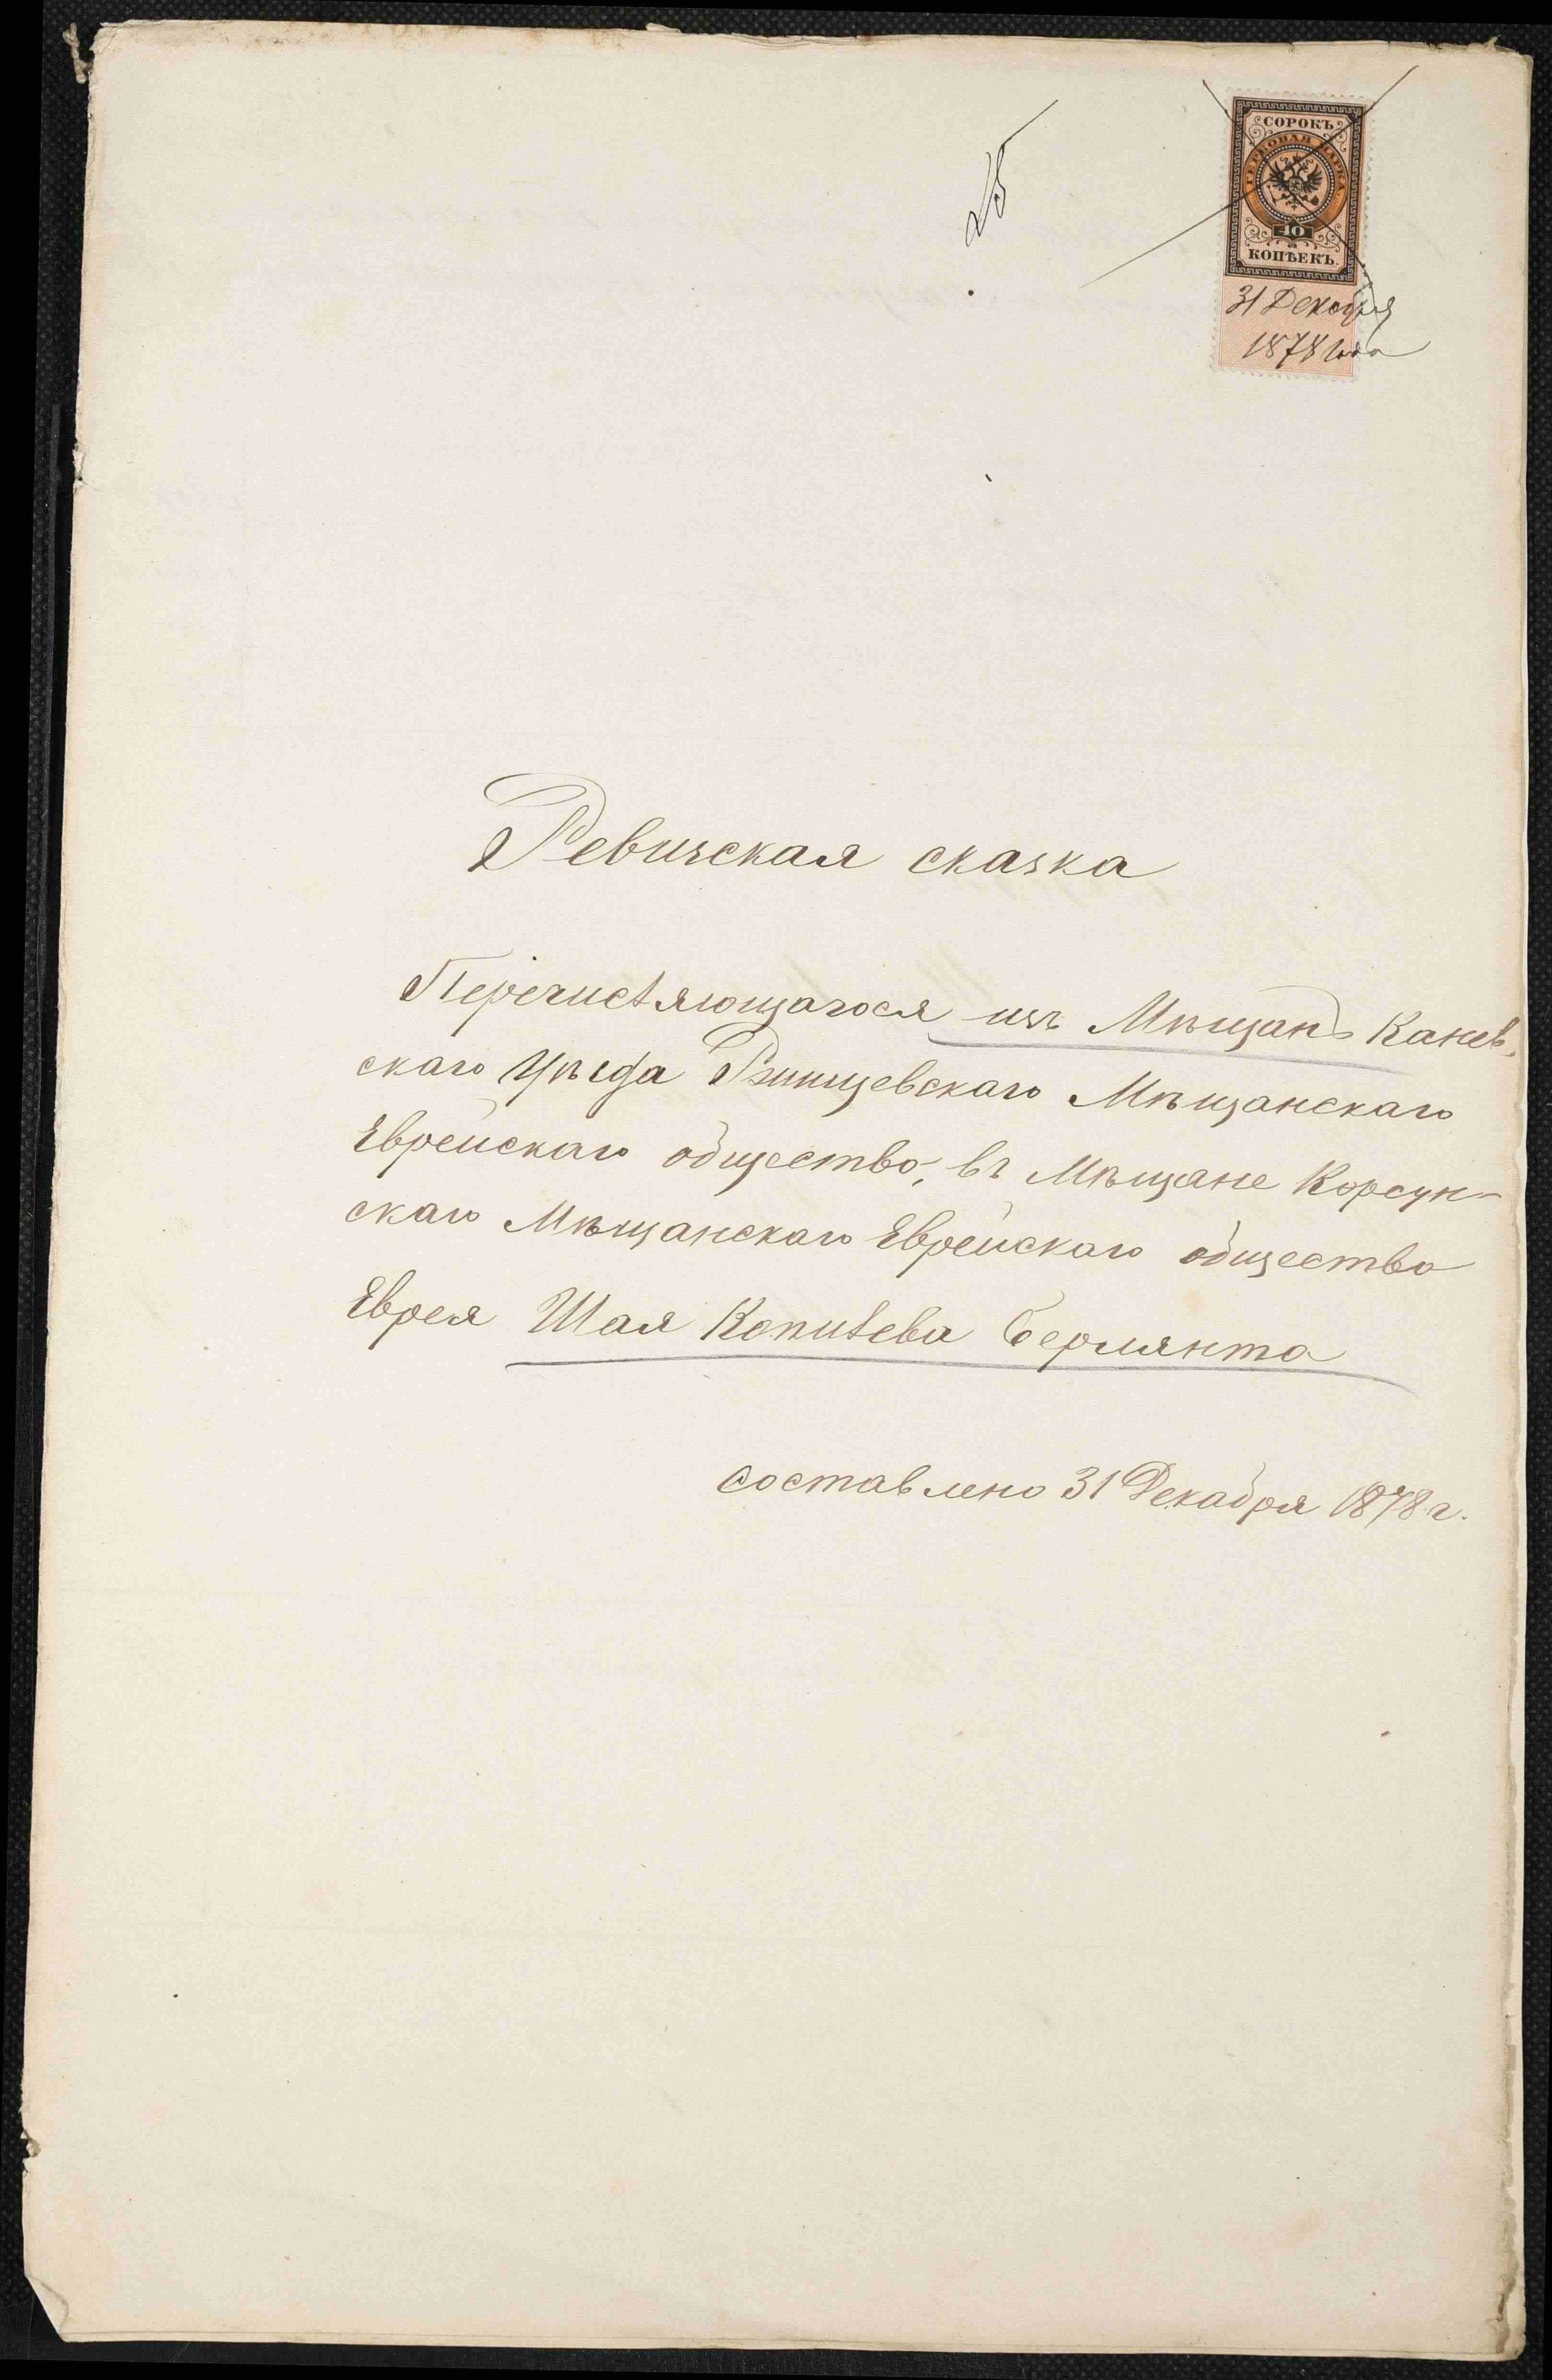 25
СОРОКЪ
ГЕРБОВАЯ МАРКА
40
КОПѢЕКЪ.
31 Декабря
1878 года
Ревизская сказка
Перечисляющагося изъ Мѣщанъ Канев-
скаго Уѣзда Ржищевскаго Мѣщанскаго
Еврейскаго общество, въ Мѣщане Корсун-
скаго Мѣщанскаго Еврейскаго общества
Еврея Шая Копилева Бермянта
составлено 31 Декабря 1878 г.